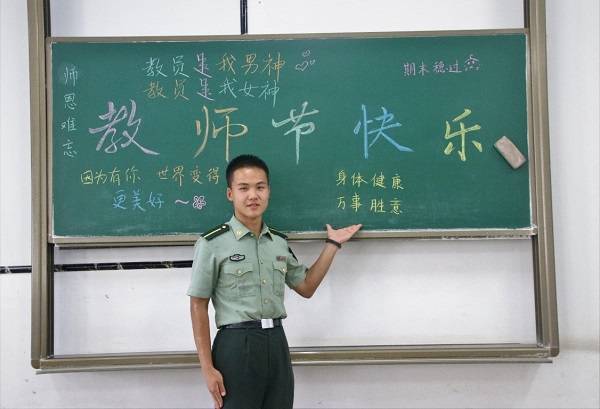 师恩难忘
教员是我男神
教员是我女神
期末稳过
教师节快乐
因为有你 世界变得
更美好
身体健康
万事胜意